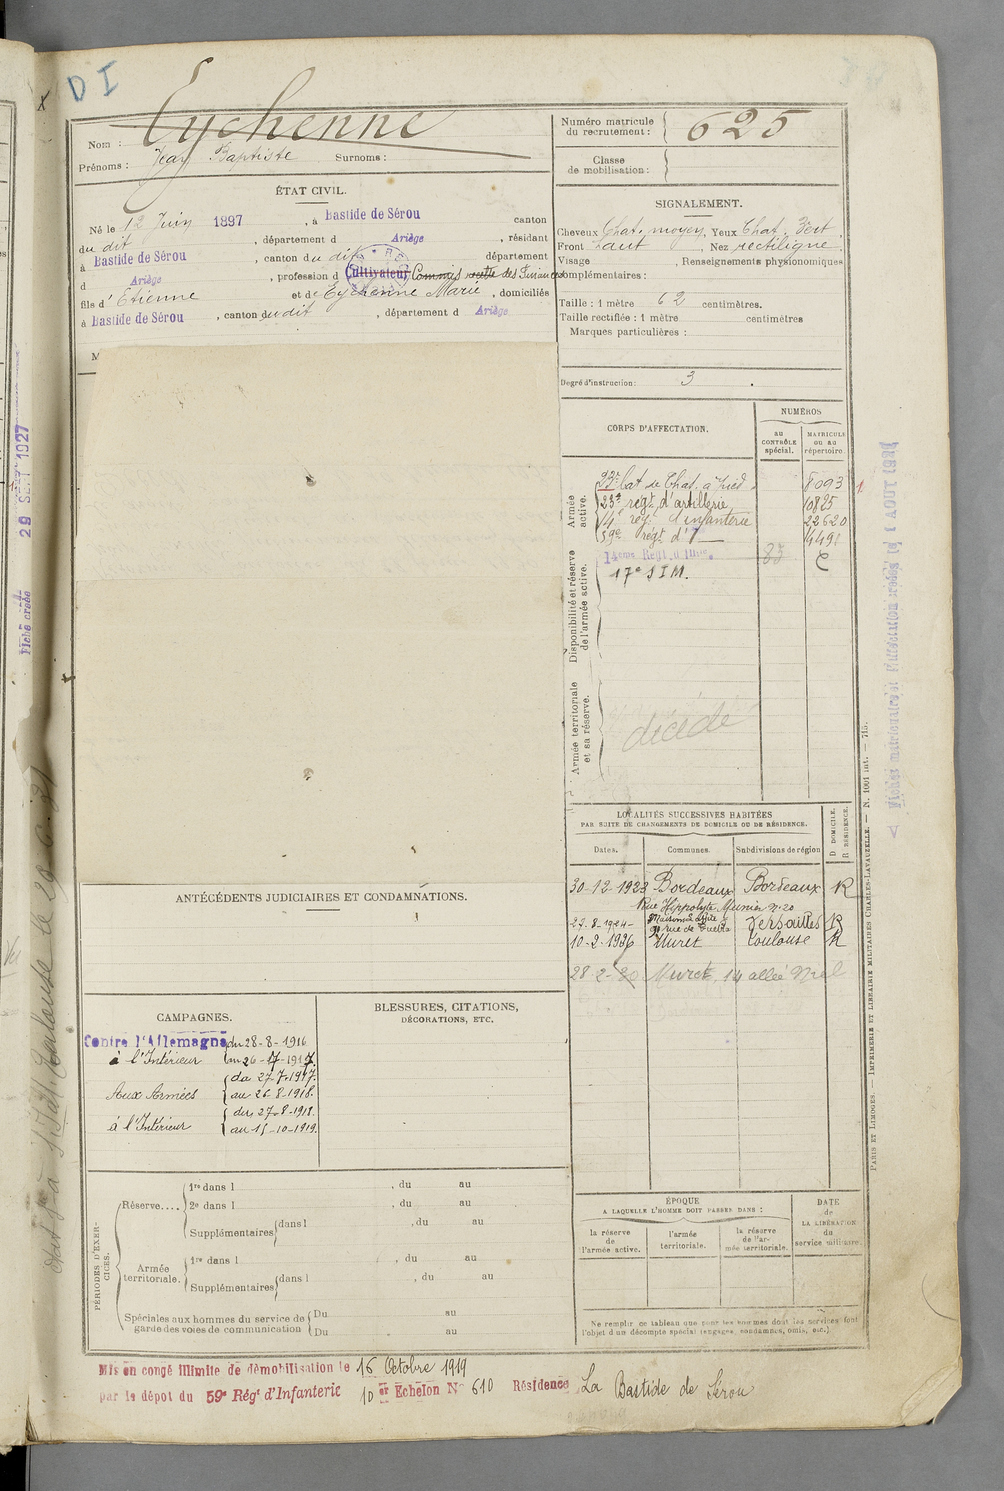 D I
Nom : Eychenne
Prénoms : Jean Baptiste Surnoms :
Numéro matricule du recrutement : 625
Classe de mobilisation :
ÉTAT CIVIL.
Né le 12 Juin 1897, à Bastide de Sérou canton
du dit, département d Ariège, résidant
à Bastide de Sérou, canton du dit département
d Ariège, profession d Cultivateur Commis recette des Finances
fils d'Etienne et de Eychenne Marie, domiciliés
à Bastide de Sérou, canton du dit, département d Ariège
M
SIGNALEMENT.
Cheveux Chat. moyen, Yeux Chat. Vert,
Front haut, Nez rectiligne,
Visage, Renseignements physionomiques
complémentaires :
Taille : 1 mètre 62 centimètres.
Taille rectifiée : 1 mètre centimètres
Marques particulières :
Degré d'instruction : 3.
CORPS D'AFFECTATION.
NUMÉROS
au CONTRÔLE spécial.
MATRICULE ou au répertoire.
Armée active.
Bat de Chas. à pied 8093
23e régt d'artillerie 10825
14e rég. d'infanterie 22620
59e régt d' 14491
Disponibilité et réserve de l'armée active.
14eme Régt d'Inf.
17e S I M.
Armée territoriale et sa réserve.
décédé
LOCALITÉS SUCCESSIVES HABITÉES
PAR SUITE DE CHANGEMENTS DE DOMICILE OU DE RÉSIDENCE.
Dates. Communes. Subdivisions de région D. DOMICILE. R. RÉSIDENCE.
30-12-1923 Bordeaux Bordeaux R
Rue Hippolyte Munier n. 20
23-8-1924 Maisons Laffite Versailles R
10-2-1926 Muret Toulouse R
28-2-30 Muret, 14 allée Niel
ANTÉCÉDENTS JUDICIAIRES ET CONDAMNATIONS.
CAMPAGNES.
Contre l'Allemagne du 28-8-1916
à l'Intérieur au 26-7-1917.
du 27-7-1917.
Aux Armées au 26-8-1918.
du 27-8-1918.
à l'Intérieur au 15-10-1919.
BLESSURES, CITATIONS,
DÉCORATIONS, ETC.
PÉRIODES D'EXERCICES.
Réserve....
1re dans l, du au
2e dans l, du au
Supplémentaires dans l, du au
Armée territoriale.
1re dans l, du au
Supplémentaires dans l, du au
Spéciales aux hommes du service de garde des voies de communication
Du au
Du au
ÉPOQUE
A LAQUELLE L'HOMME DOIT PASSER DANS :
la réserve de l'armée active.
l'armée territoriale.
la réserve de l'armée territoriale.
DATE de LA LIBÉRATION du service militaire.
Ne remplir ce tableau que pour les hommes dont les services font
l'objet d'un décompte spécial (engagés, condamnés, omis, etc.)
Mis en congé illimité de démobilisation le 16 Octobre 1919
par le dépôt du 59e Régt d'Infanterie 10 er Echelon N° 610 Résidence La Bastide de Sérou
Fiche créée 29 SEPT 1927
PARIS ET LIMOGES. — IMPRIMERIE ET LIBRAIRIE MILITAIRES CHARLES-LAVAUZELLE. — N. 1001 int. — 715.